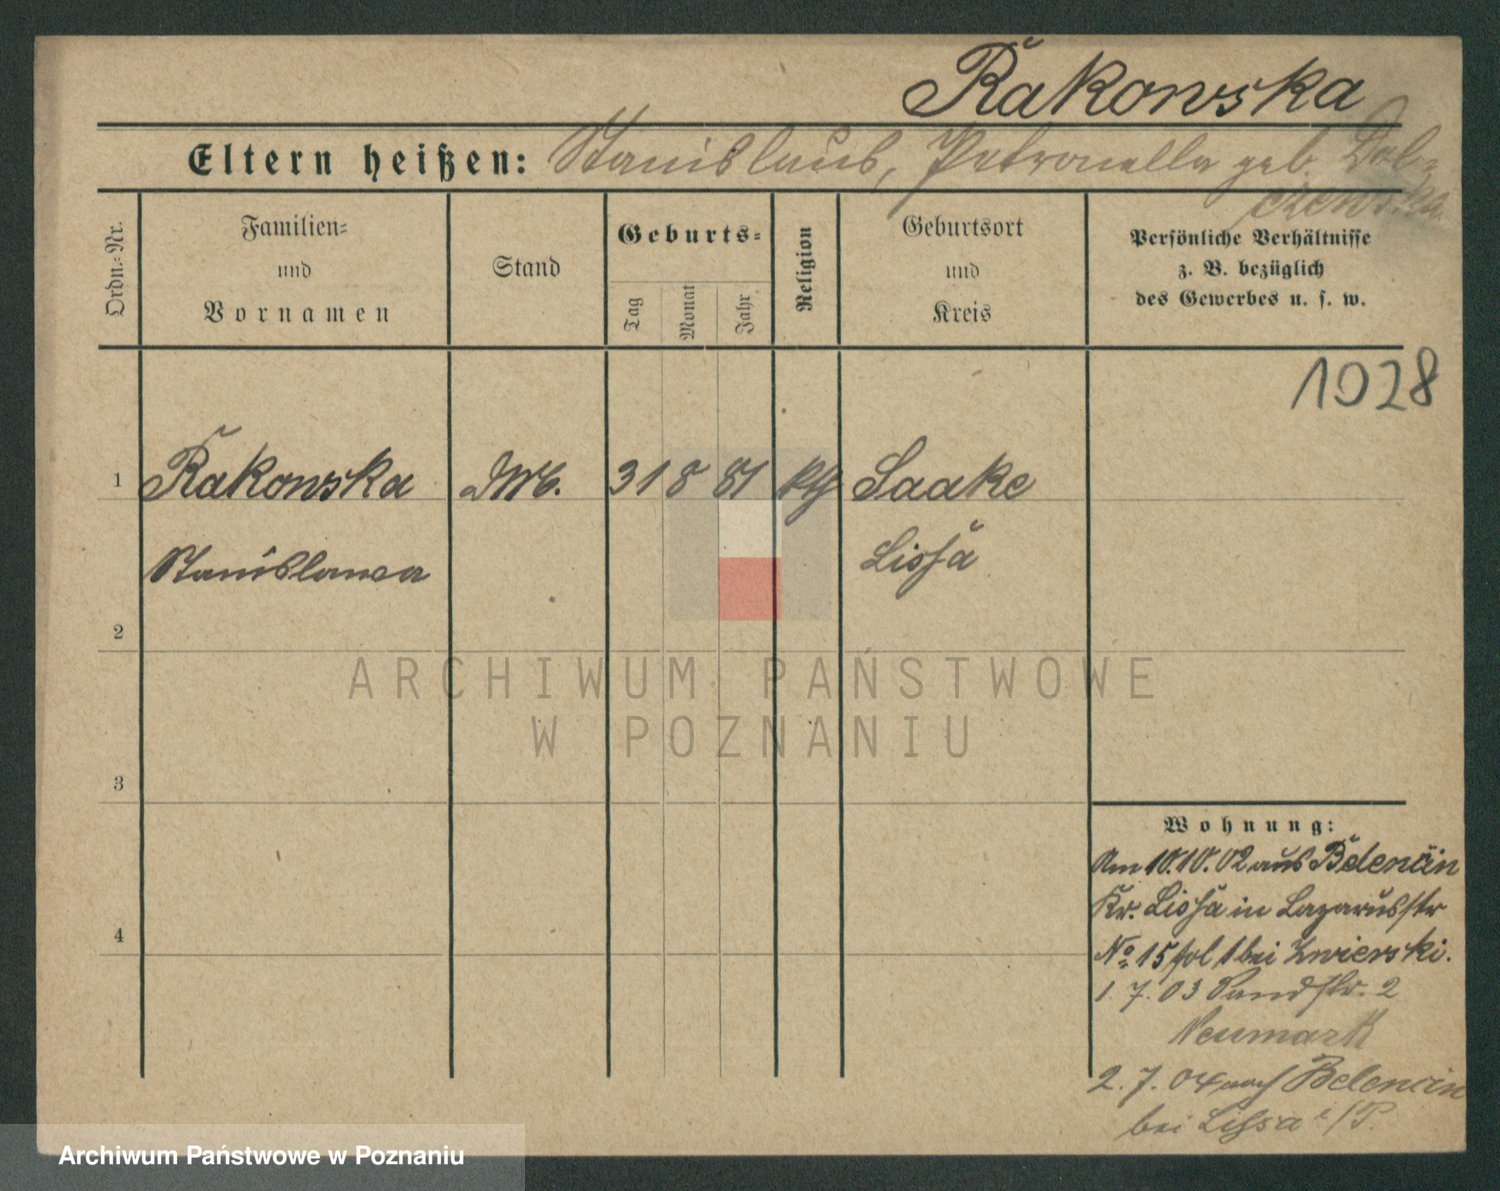 Rakowska
Eltern heißen: Stanislaus, Petronella geb. Dol=
czewska
Ordn.=Nr.
Familien=
und
Vornamen
Stand
Geburts=
Tag
Monat
Jahr
Religion
Geburtsort
und
Kreis
Persönliche Verhältnisse
z. B. bezüglich
des Gewerbes u. s. w.
1928
1 Rakowska 31 8 81 kth Saake
Stanislawa Lissa
2
3
4
ARCHIWUM PAŃSTWOWE
W POZNANIU
Wohnung:
Am 10.10.02 aus Belencin
Kr. Lissa in Lazarusstr
No 15 fol 1 bei Zwierski.
1. 7. 03 Sandstr. 2
Neumark
2. 7. 04 nach Belencin
bei Lissa i/P.
Archiwum Państwowe w Poznaniu